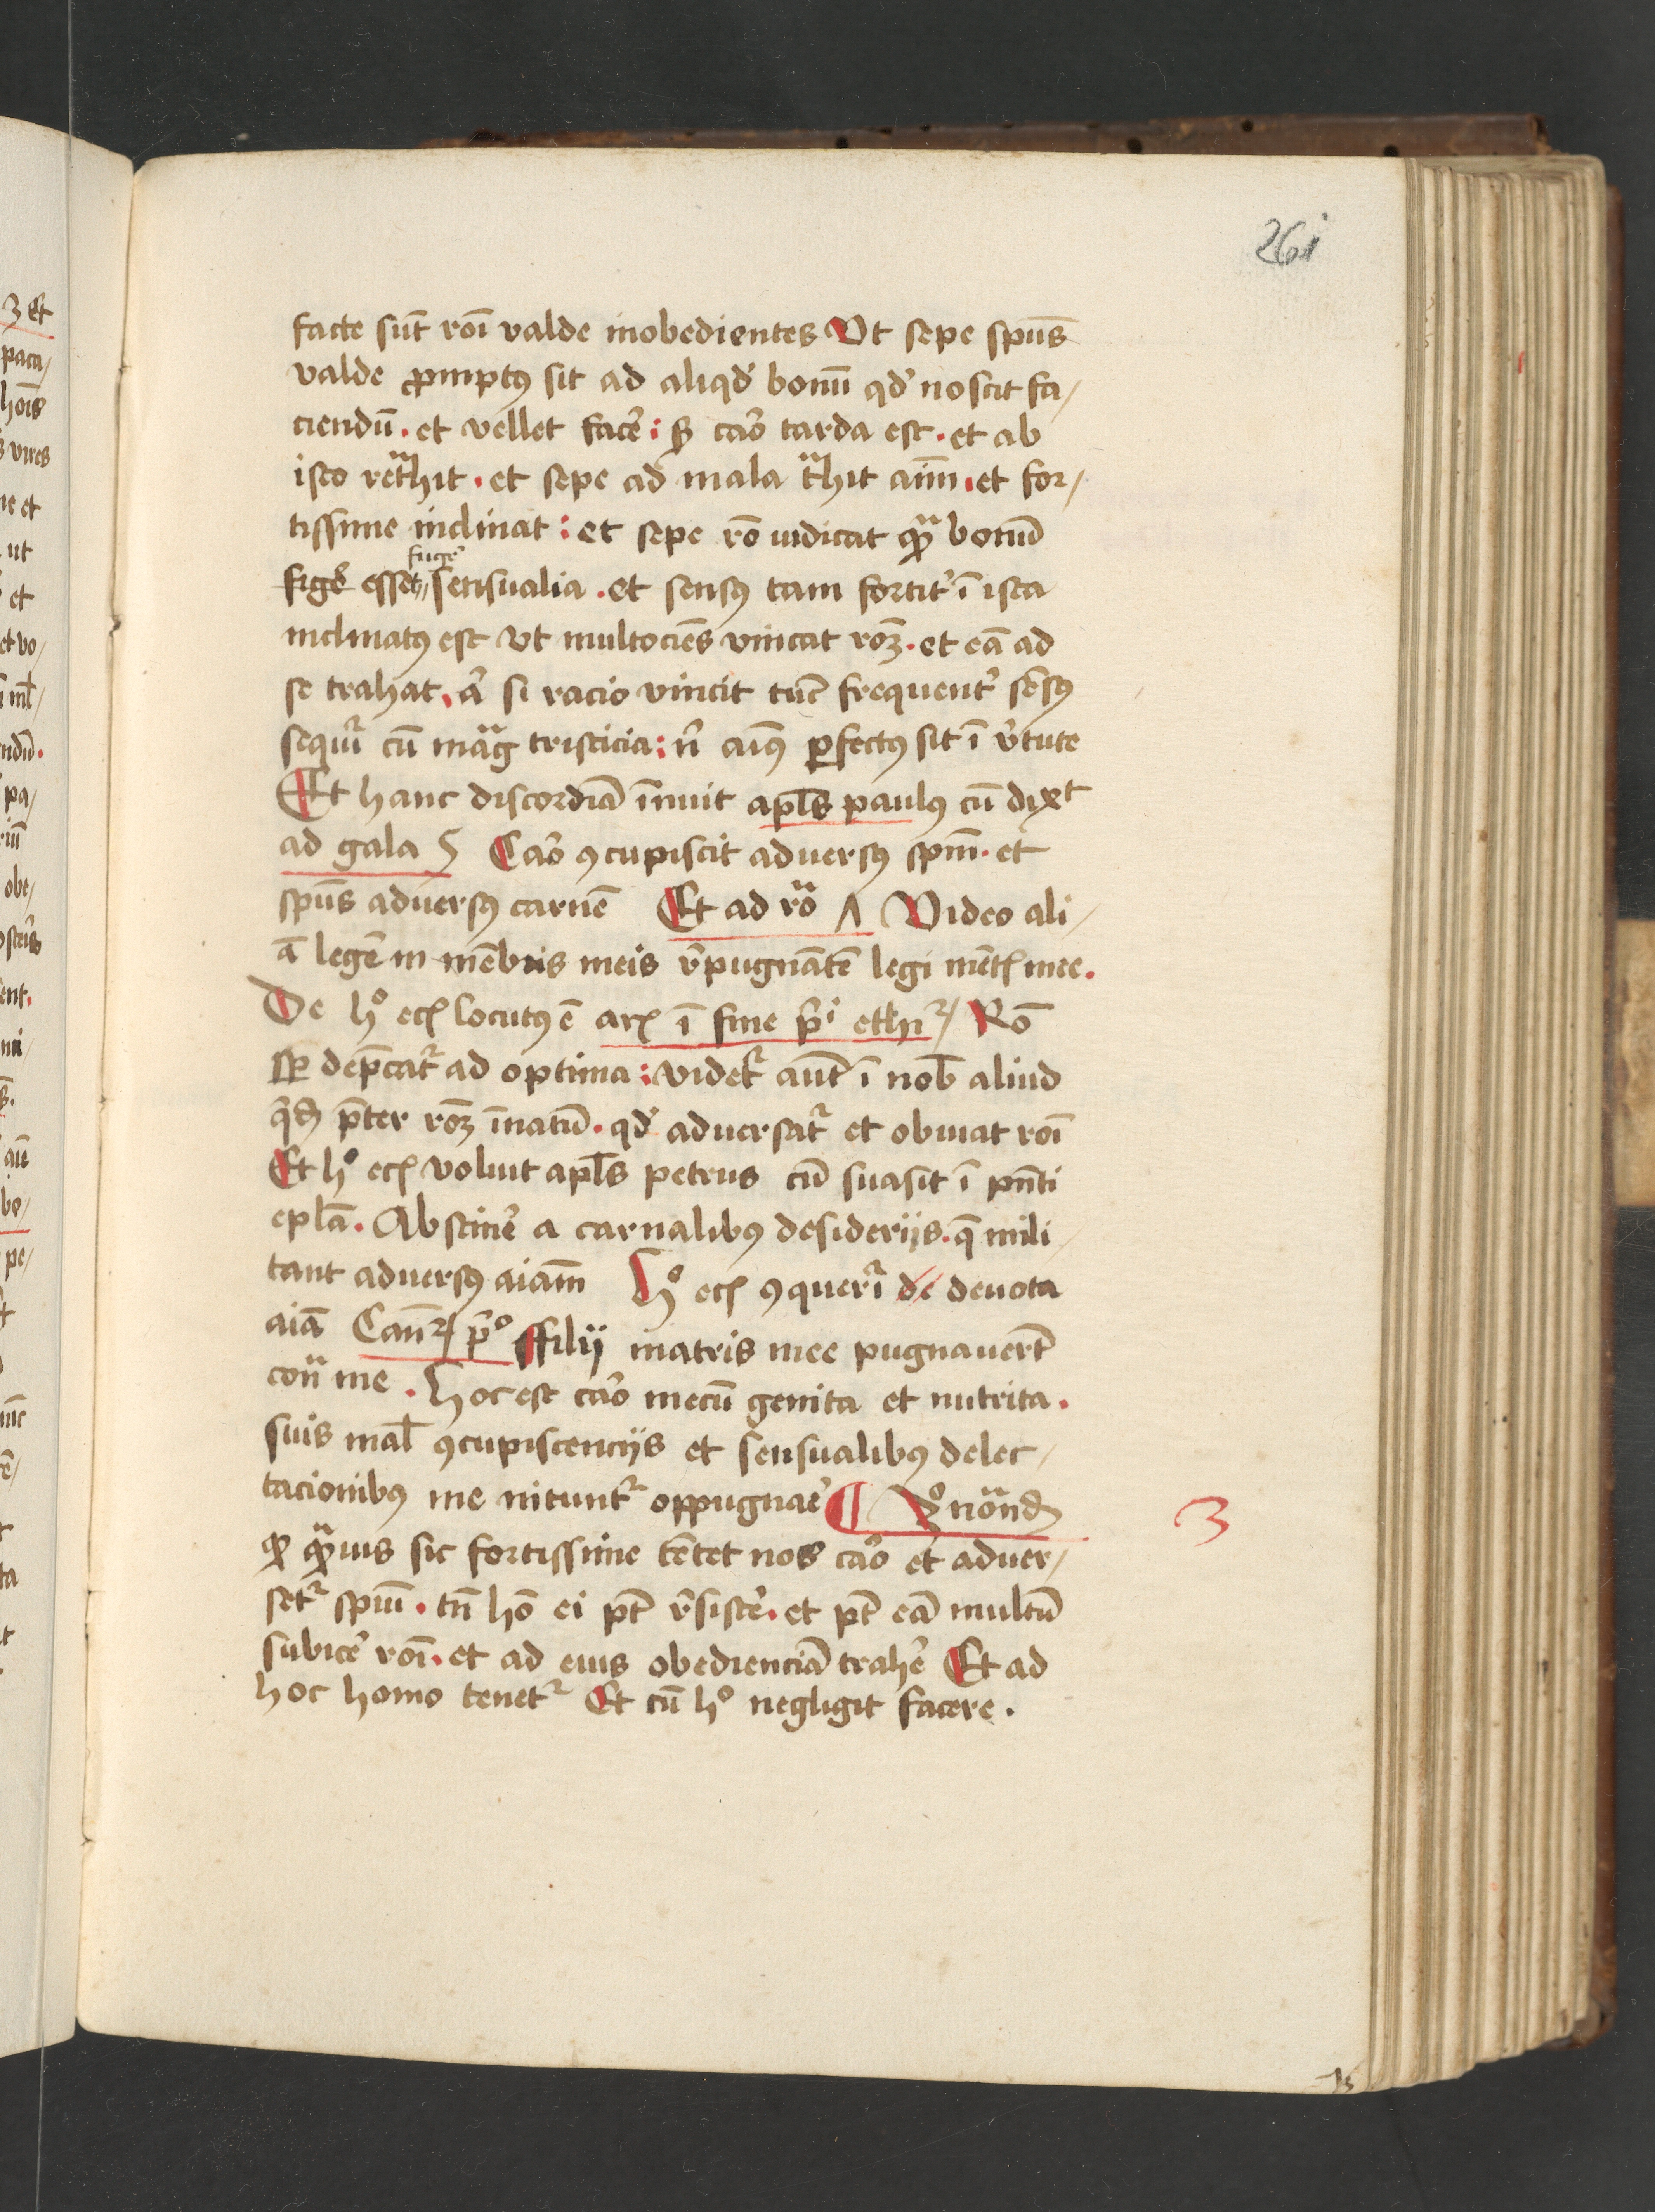 261
facte sūt roi valde inobedientes Vt sepe spūs
valde ꝓmptꝰ sit ad aliqd bonū qd noscit fa/
ciendū . et vellet facē : sꝫ caro tarda est . et ab
isto retᵃhit . et sepe ad mala tᵃhit aīm . et for/
tissime inclinat : et sepe rō iudicat qᵃ bonū
fugē
figē esset sensualia . et sensꝰ tam fortit ī ista
inclinatꝰ est vt multociēs vincat roꝫ . et eā ad
se trahat . et si racio vincit tūc frequent sēsꝰ
sequit cū magᵃ tristicia : n aīꝰ ꝑfectꝰ sit ī v̄tute
Et hanc discordiā īnuit apls paulꝰ cū dixt
ad gala 5 Caro ꝯcupiscit aduersꝰ spm . et
spūs aduersꝰ carnē Et ad ro Λ Video ali/
ā legē in mēbris meis r̄pugnātē legi mētꝭ mee .
De hº ecꝭ locutꝰ ē arꝭ ī fine pⁱ ethꝝ Rō
sꝑ dep̄catr ad optima : videtr aūt ī nob aliud
qdꝫ p̄ter roꝫ īnatū . qd aduersatr et obuiat roī
Et hº ecꝭ voluit apls petrus cū suasit ī pn̄ti
epl̄a . Abstinē a carnalibꝰ desiderijs . q̄ mili/
tant aduersꝰ aiam Hº ecꝭ ꝯquerī de deuota
aiā Canꝝ pº ffilij matris mee pugnauert
conᵃ me . Hoc est caro mecū genita et nutrita .
suis mal ꝯcupiscencijs et sensualibꝰ delec/
tacionibꝰ me nituntr oppugnaē ¶ 3º notand
3
qꝫ qᵃuis sic fortissime tētet nos caro et aduer/
setr spiui . tn̄ hō ei pt̄ r̄sistē . et pt̄ eā multū
subicē roī . et ad eius obedienciā trahē Et ad
hoc homo tenetr Et cū hº negligit facere .